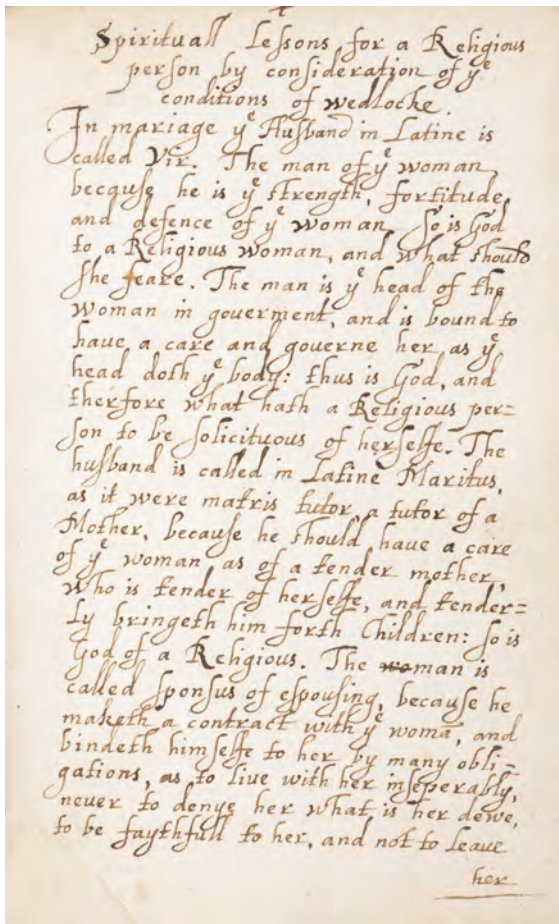 Spirituall Lessons for a Religious
person by consideration of yᵉ
conditions of wedlocke.
In mariage yᵉ Husband in Latine is
called Vir. The man of yᵉ woman,
because he is yᵉ strength, fortitude,
and defence of yᵉ woman. So is God
to a Religious woman, and what should
she feare. The man is yᵉ head of the
woman in goverment, and is bound to
have a care and governe her as yᵉ
head doth yᵉ body: thus is God, and
therfore what hath a Religious per=
son to be solicituous of herselfe. The
husband is called in Latine Maritus,
as it were matris tutor, a tutor of a
Mother, because he should have a care
of yᵉ woman, as of a tender mother,
who is tender of herselfe, and tender=
ly bringeth him forth Children: so is
God of a Religious. The woman is
called sponsus of espousing, because he
maketh a contract with yᵉ woma, and
bindeth himselfe to her by many obli=
gations, as to live with her inseperably,
never to denye her what is her dewe,
to be faythfull to her, and not to leave
her